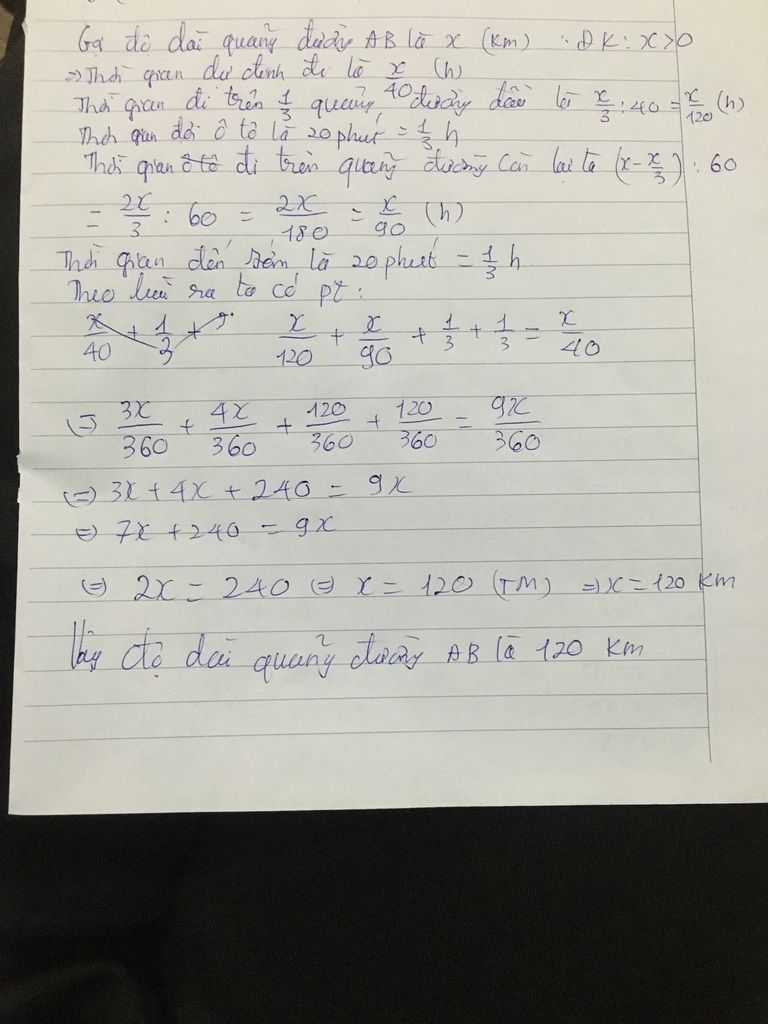 Gọi độ dài quãng đường AB là x (km) . ĐK : x > 0
=> Thời gian dự định đi là x/40 (h)
Thời gian đi trên 1/3 quãng đường đầu là x/3 : 40 = x/120 (h)
Thời gian đổi ô tô là 20 phút = 1/3 h
Thời gian ô tô đi trên quãng đường còn lại là (x - x/3) : 60
= 2x/3 : 60 = 2x/180 = x/90 (h)
Thời gian đến sớm là 20 phút = 1/3 h
Theo bài ra ta có pt :
x/40 + 1/3 + x/120 + x/90 + 1/3 + 1/3 = x/40
<=> 3x/360 + 4x/360 + 120/360 + 120/360 = 9x/360
<=> 3x + 4x + 240 = 9x
<=> 7x + 240 = 9x
<=> 2x = 240 <=> x = 120 (TM) => x = 120 km
Vậy độ dài quãng đường AB là 120 km